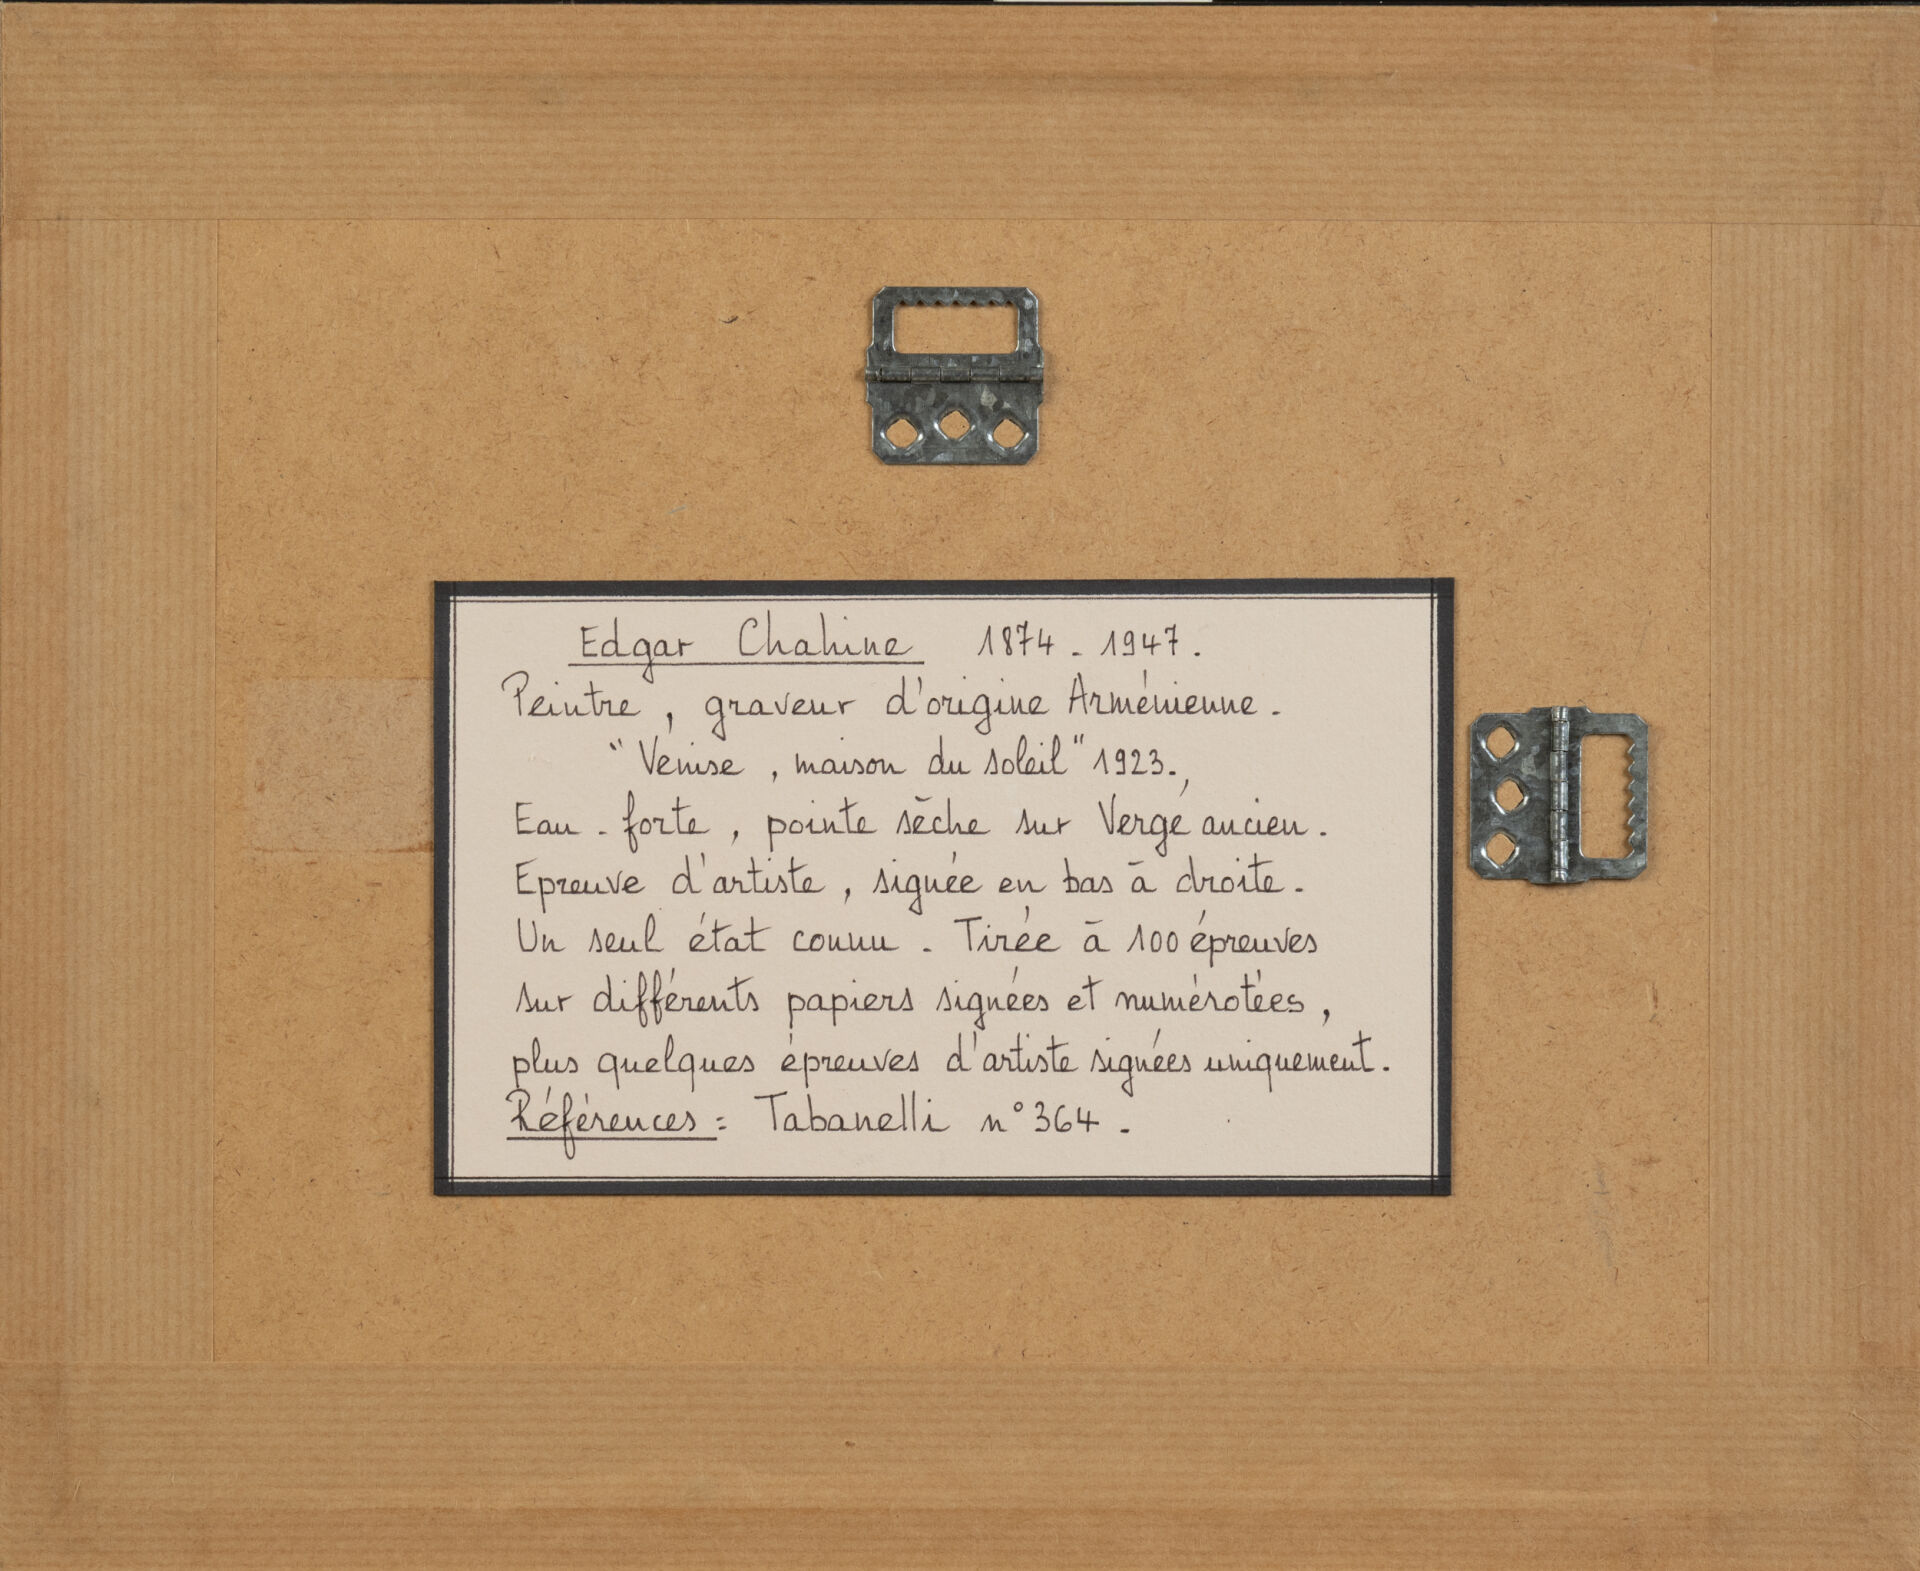 Edgar Chahine 1874 - 1947.
Peintre, graveur d'origine Arménienne.
"Vénise, maison du soleil" 1923.
Eau-forte, pointe sèche sur Vergé ancien.
Epreuve d'artiste, signée en bas à droite.
Un seul état connu. Tirée à 100 épreuves
sur différents papiers signées et numérotées,
plus quelques épreuves d'artiste signées uniquement.
Références : Tabanelli n° 364.